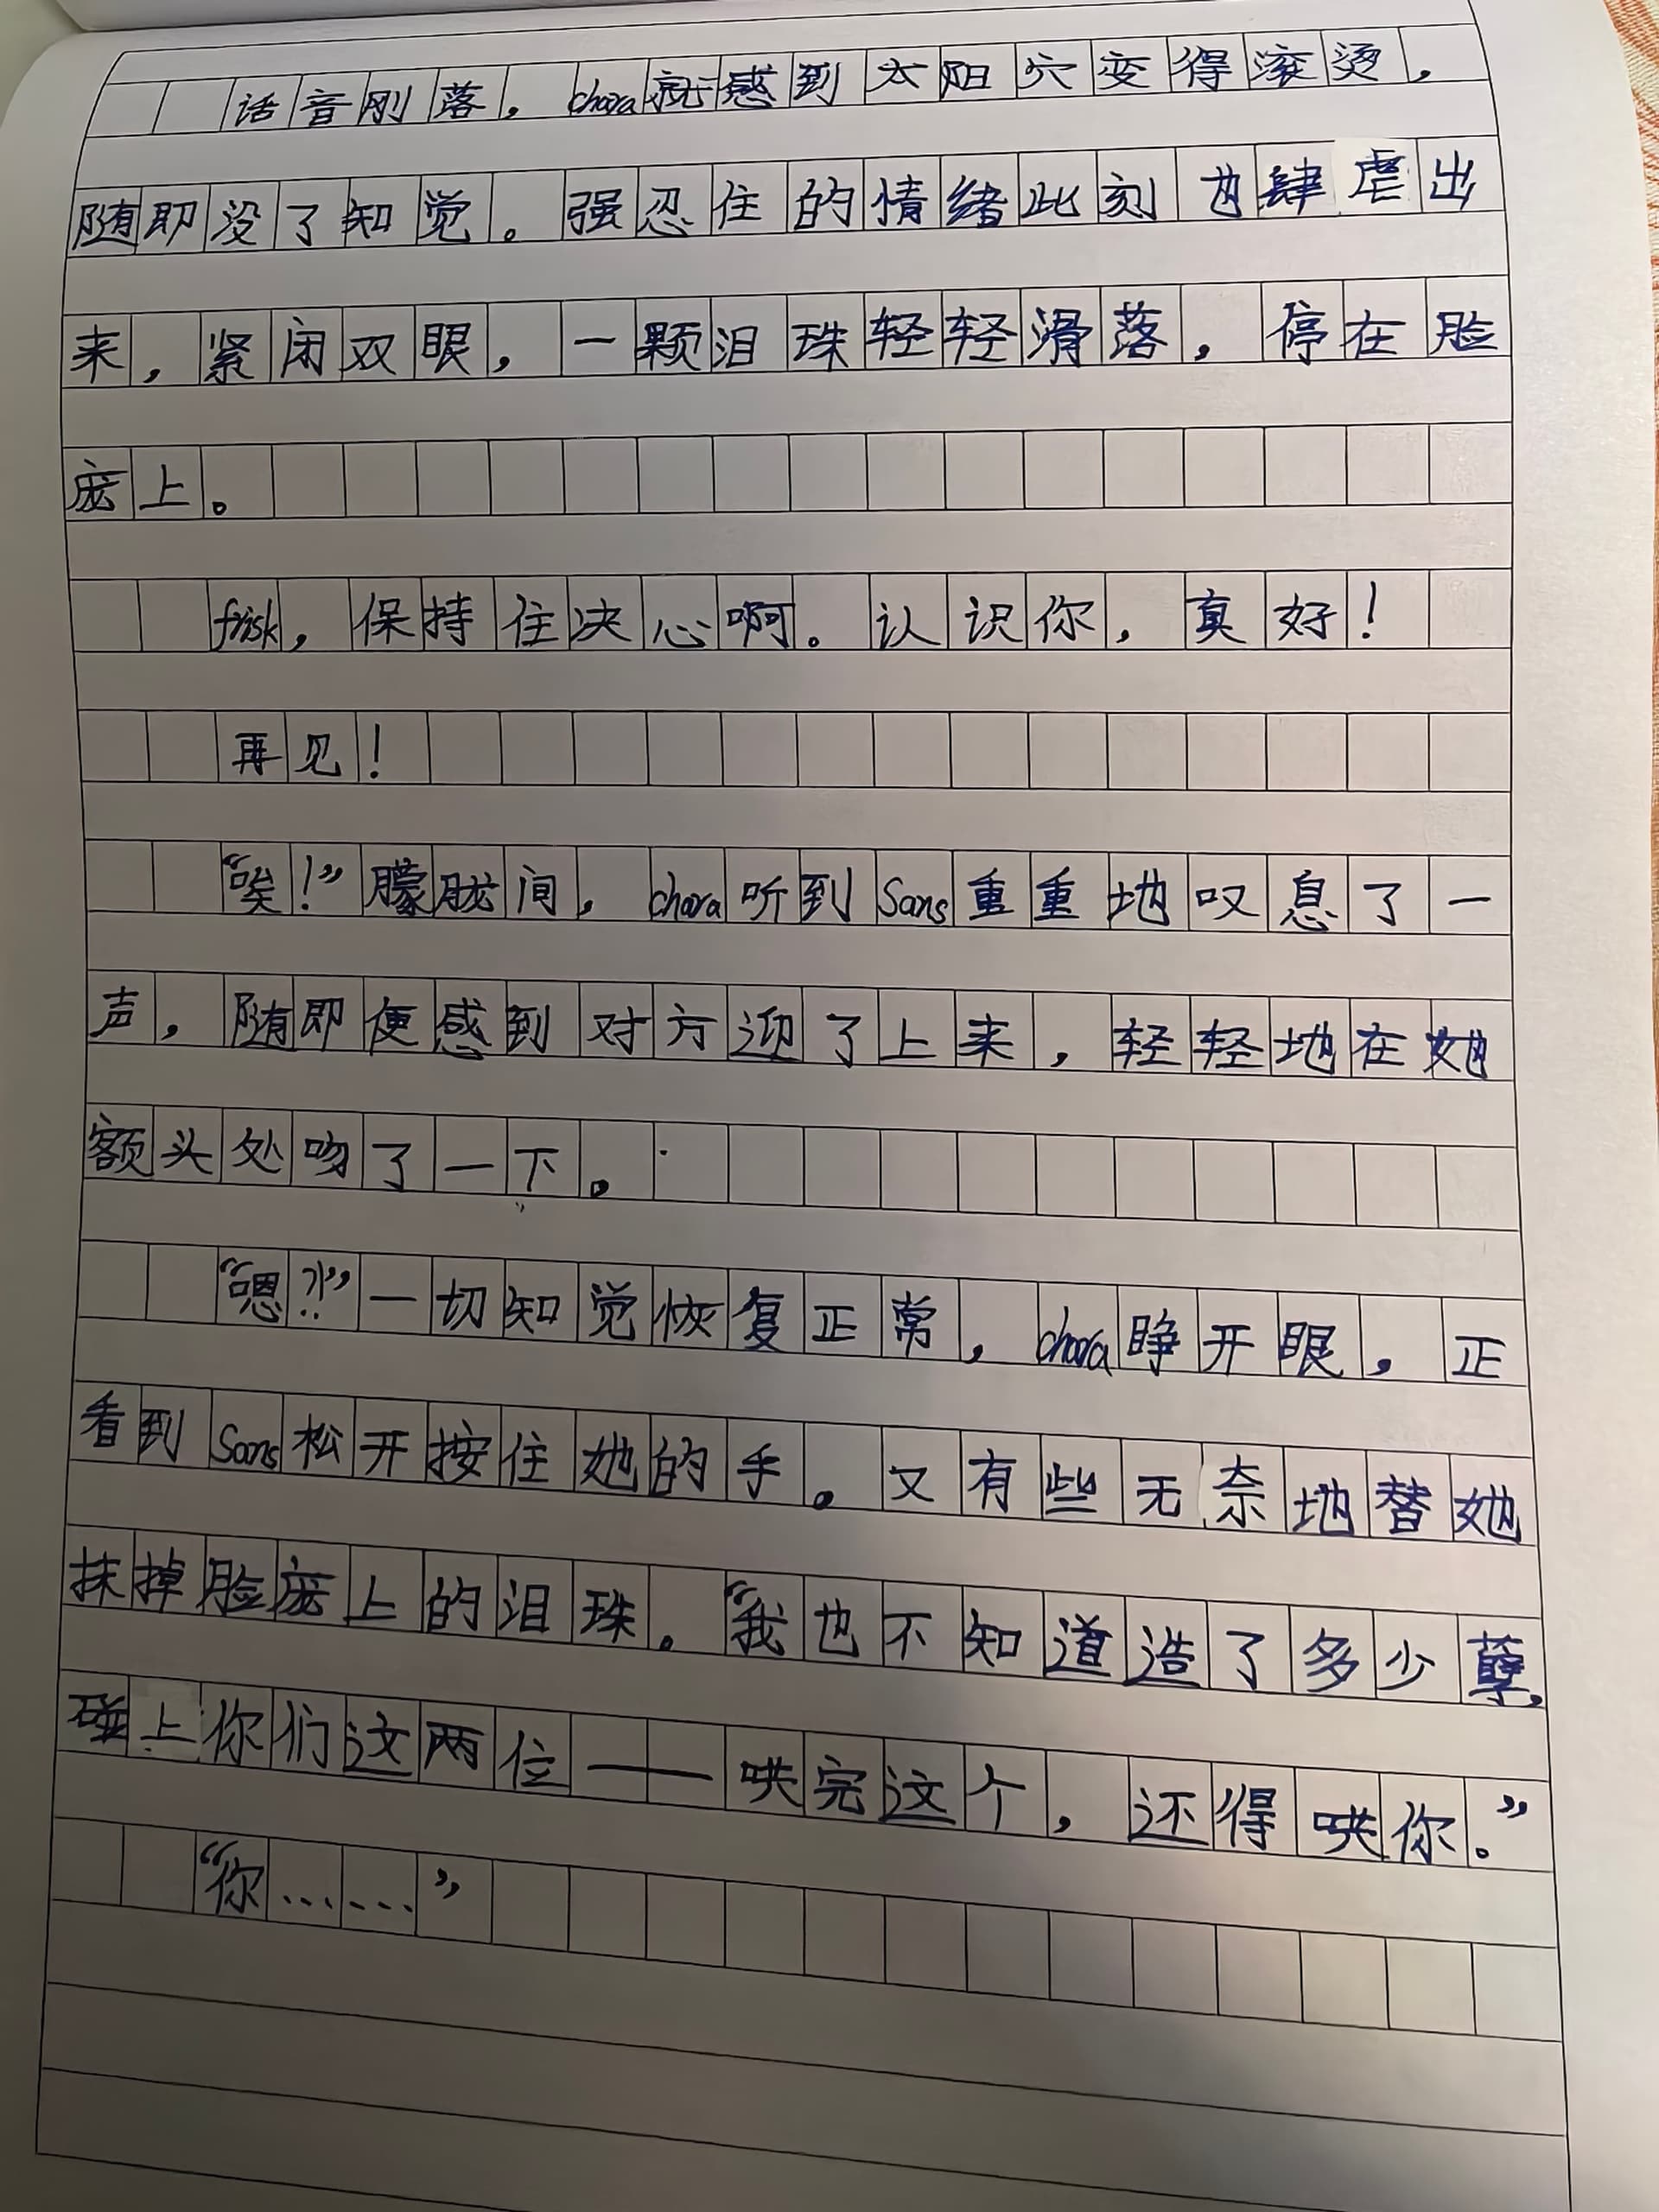 话音刚落，chara就感到太阳穴变得滚烫，
随即没了知觉。强忍住的情绪此刻也肆虐出
来，紧闭双眼，一颗泪珠轻轻滑落，停在脸
庞上。
frisk，保持住决心啊。认识你，真好！
再见！
“唉！”朦胧间，chara听到Sans重重地叹息了一
声，随即便感到对方迎了上来，轻轻地在她
额头处吻了一下。
“嗯？！”一切知觉恢复正常，chara睁开眼，正
看到Sans松开按住她的手。又有些无奈地替她
抹掉脸庞上的泪珠。“我也不知道造了多少孽，
碰上你们这两位——哄完这个，还得哄你。”
“你……”